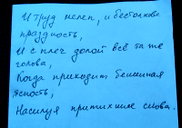 И труд нелеп, и бестолкова
праздность,
И с плеч долой всё та же
голова,
Когда приходит бешеная
ясность,
Насилуя притихшие слова.